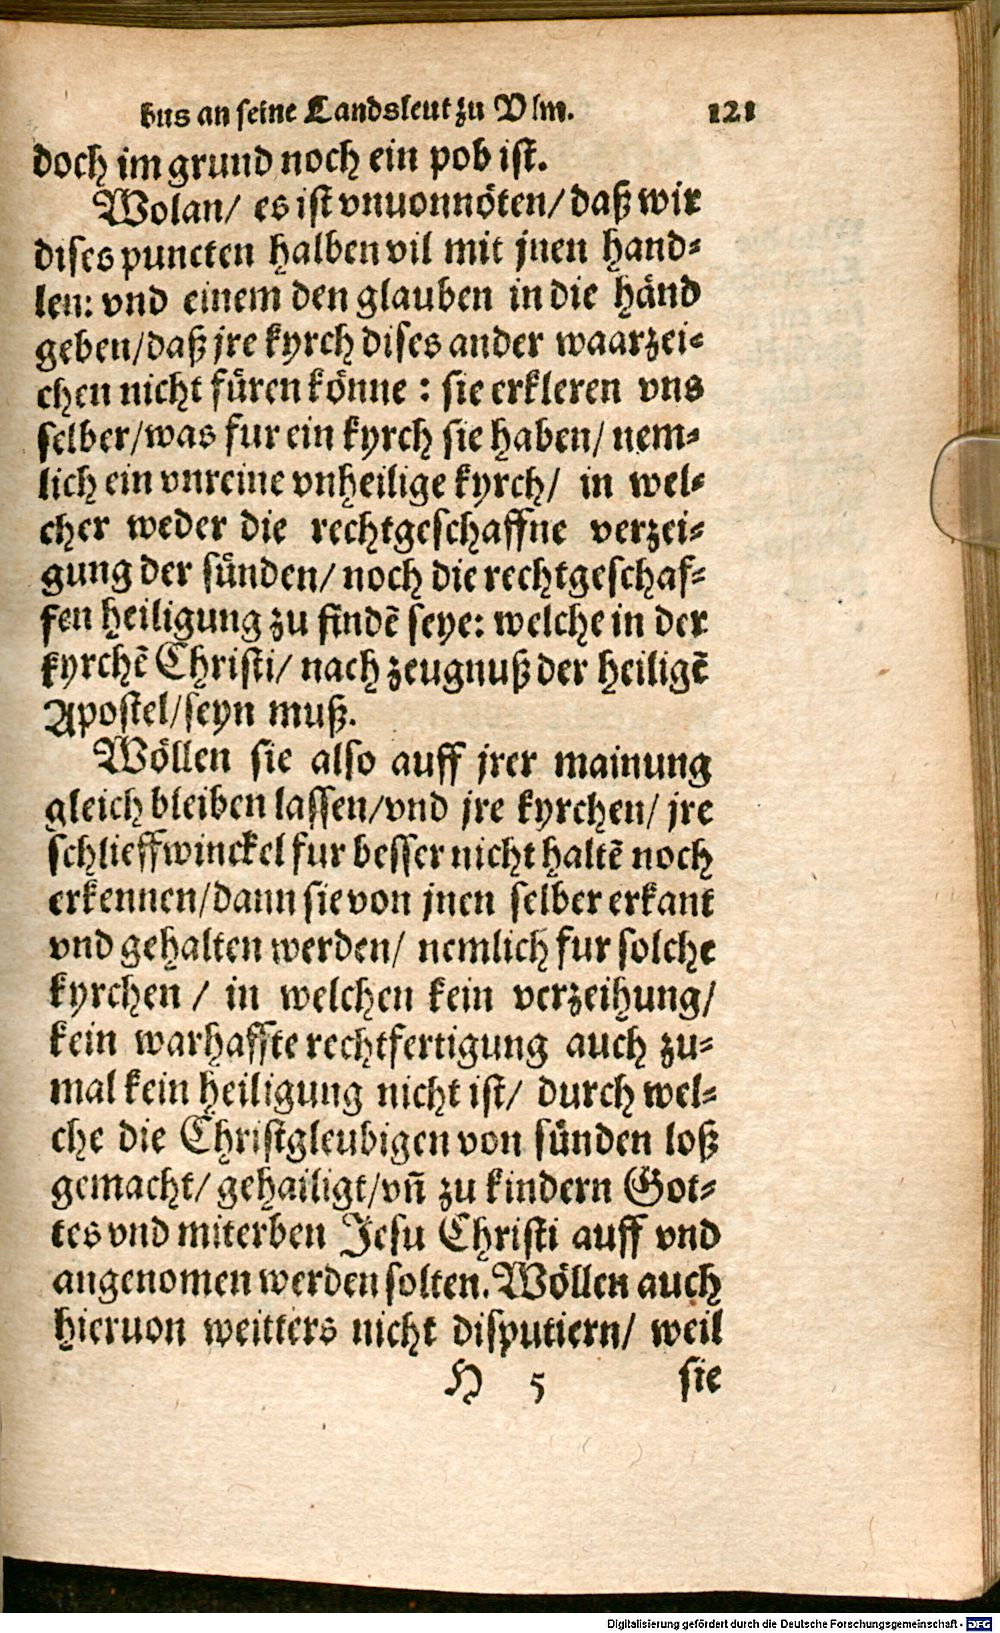 bus an seine Landsleut zu Vlm. 121
doch im grund noch ein pob ist.
Wolan/ es ist vnuonnöten/ daß wir
dises puncten halben vil mit jnen hand-
len: vnd einem den glauben in die händ
geben/daß jre kyrch dises ander waarzei-
chen nicht füren könne: sie erkleren vns
selber/was fur ein kyrch sie haben/ nem-
lich ein vnreine vnheilige kyrch/ in wel-
cher weder die rechtgeschaffne verzei-
gung der sünden/ noch die rechtgeschaf-
fen heiligung zu findē seye: welche in der
kyrchē Christi/ nach zeugnuß der heiligē
Apostel/seyn muß.
Wöllen sie also auff jrer mainung
gleich bleiben lassen/vnd jre kyrchen/ jre
schlieffwinckel fur besser nicht haltē noch
erkennen/dann sie von jnen selber erkant
vnd gehalten werden/ nemlich fur solche
kyrchen / in welchen kein verzeihung/
kein warhaffte rechtfertigung auch zu-
mal kein heiligung nicht ist/ durch wel-
che die Christgleubigen von sünden loß
gemacht/ gehailigt/vn̄ zu kindern Got-
tes vnd miterben Jesu Christi auff vnd
angenomen werden solten. Wöllen auch
hieruon weitters nicht disputiern/ weil
H 5 sie
Digitalisierung gefördert durch die Deutsche Forschungsgemeinschaft - DFG